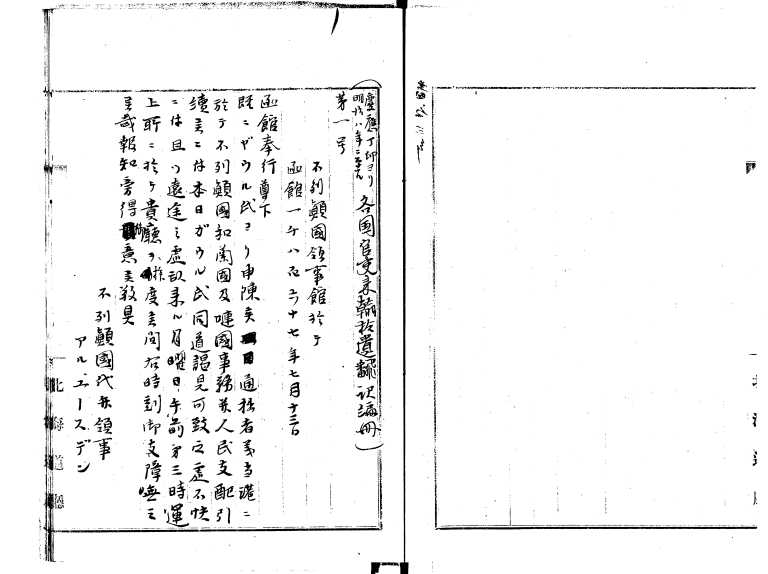 慶應丁卯ヨリ
明治八年ニ至ル
各国官吏来翰拾遺飜訳編冊
第一号
不列顛國領事館於テ
函館一千八百六十七年七月十三日
函館奉行尊下
既ニガウル氏ヨリ申陳候通拙者義当港ニ
於テ不列顛國和蘭国及嗹國事務并人民支配引
續候ニ付本日ガウル氏同道謁見可致之處不快
ニ付且つ遠途之處故来ル月曜日午前第三時運
上所ニ於テ貴廳ヲ拝度候間右時刻御支障無之
候哉報知旁得貴意候敬具
不列顛國代弁領事
アル ユースデン
北海道